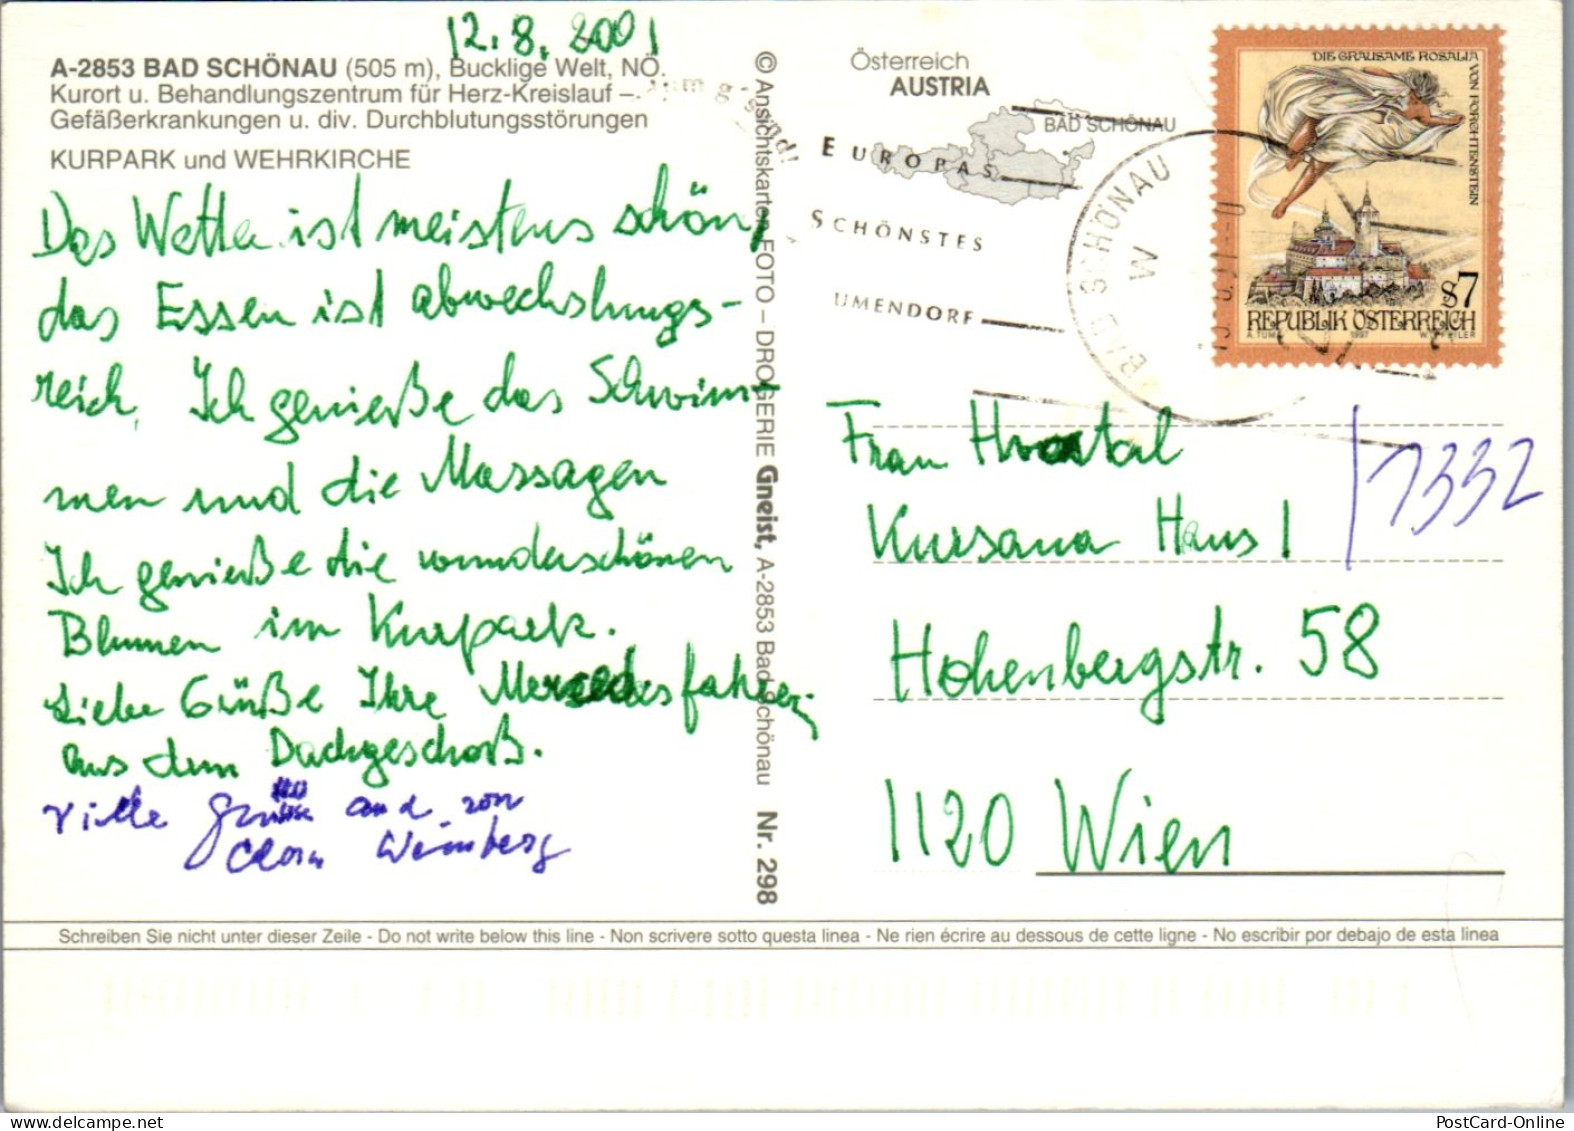 12.8.2001
A-2853 BAD SCHÖNAU (505 m), Bucklige Welt, NÖ.
Kurort u. Behandlungszentrum für Herz-Kreislauf –
Gefäßerkrankungen u. div. Durchblutungsstörungen
KURPARK und WEHRKIRCHE
Das Wetter ist meistens schön,
das Essen ist abwechslungs-
reich. Ich genieße das Schwim-
men und die Massagen
Ich genieße die wunderschönen
Blumen im Kurpark.
Liebe Grüße Ihre Mercedesfahrerin
aus dem Dachgeschoß.
Viele Grüße and von
Weinberg
© Ansichtskarten FOTO – DROGERIE Gneist, A-2853 Bad Schönau Nr. 298
Österreich
AUSTRIA
BAD SCHÖNAU
EUROPAS
SCHÖNSTES
UMENDORF
BAD SCHÖNAU
W
DIE GRAUSAME ROSALIA
VON FORCHTENSTEIN
S7
REPUBLIK ÖSTERREICH
1997
Frau Hrostal
Kursana Haus 1
1332
Hohenbergstr. 58
1120 Wien
Schreiben Sie nicht unter dieser Zeile - Do not write below this line - Non scrivere sotto questa linea - Ne rien écrire au dessous de cette ligne - No escribir por debajo de esta linea
PostCard-Online